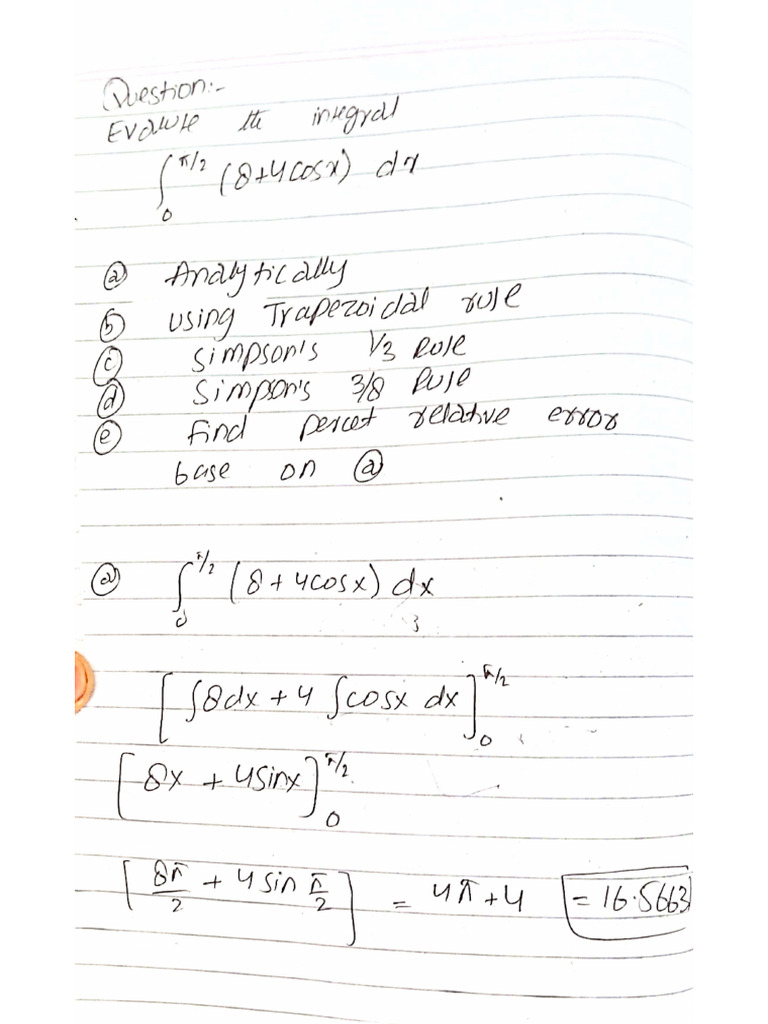 Question:-
Evalute the integral
∫₀^π/2 (8+4cosx) dx
ⓐ Analytically
ⓑ using Trapezoidal rule
ⓒ Simpson's 1/3 Rule
ⓓ Simpson's 3/8 Rule
ⓔ find percet relative error
base on ⓐ
ⓐ ∫₀^π/2 (8+4cosx) dx
[∫8dx + 4 ∫cosx dx]₀^π/2
[8x + 4sinx]₀^π/2
[8π/2 + 4 sin π/2] = 4π+4 = 16.5663